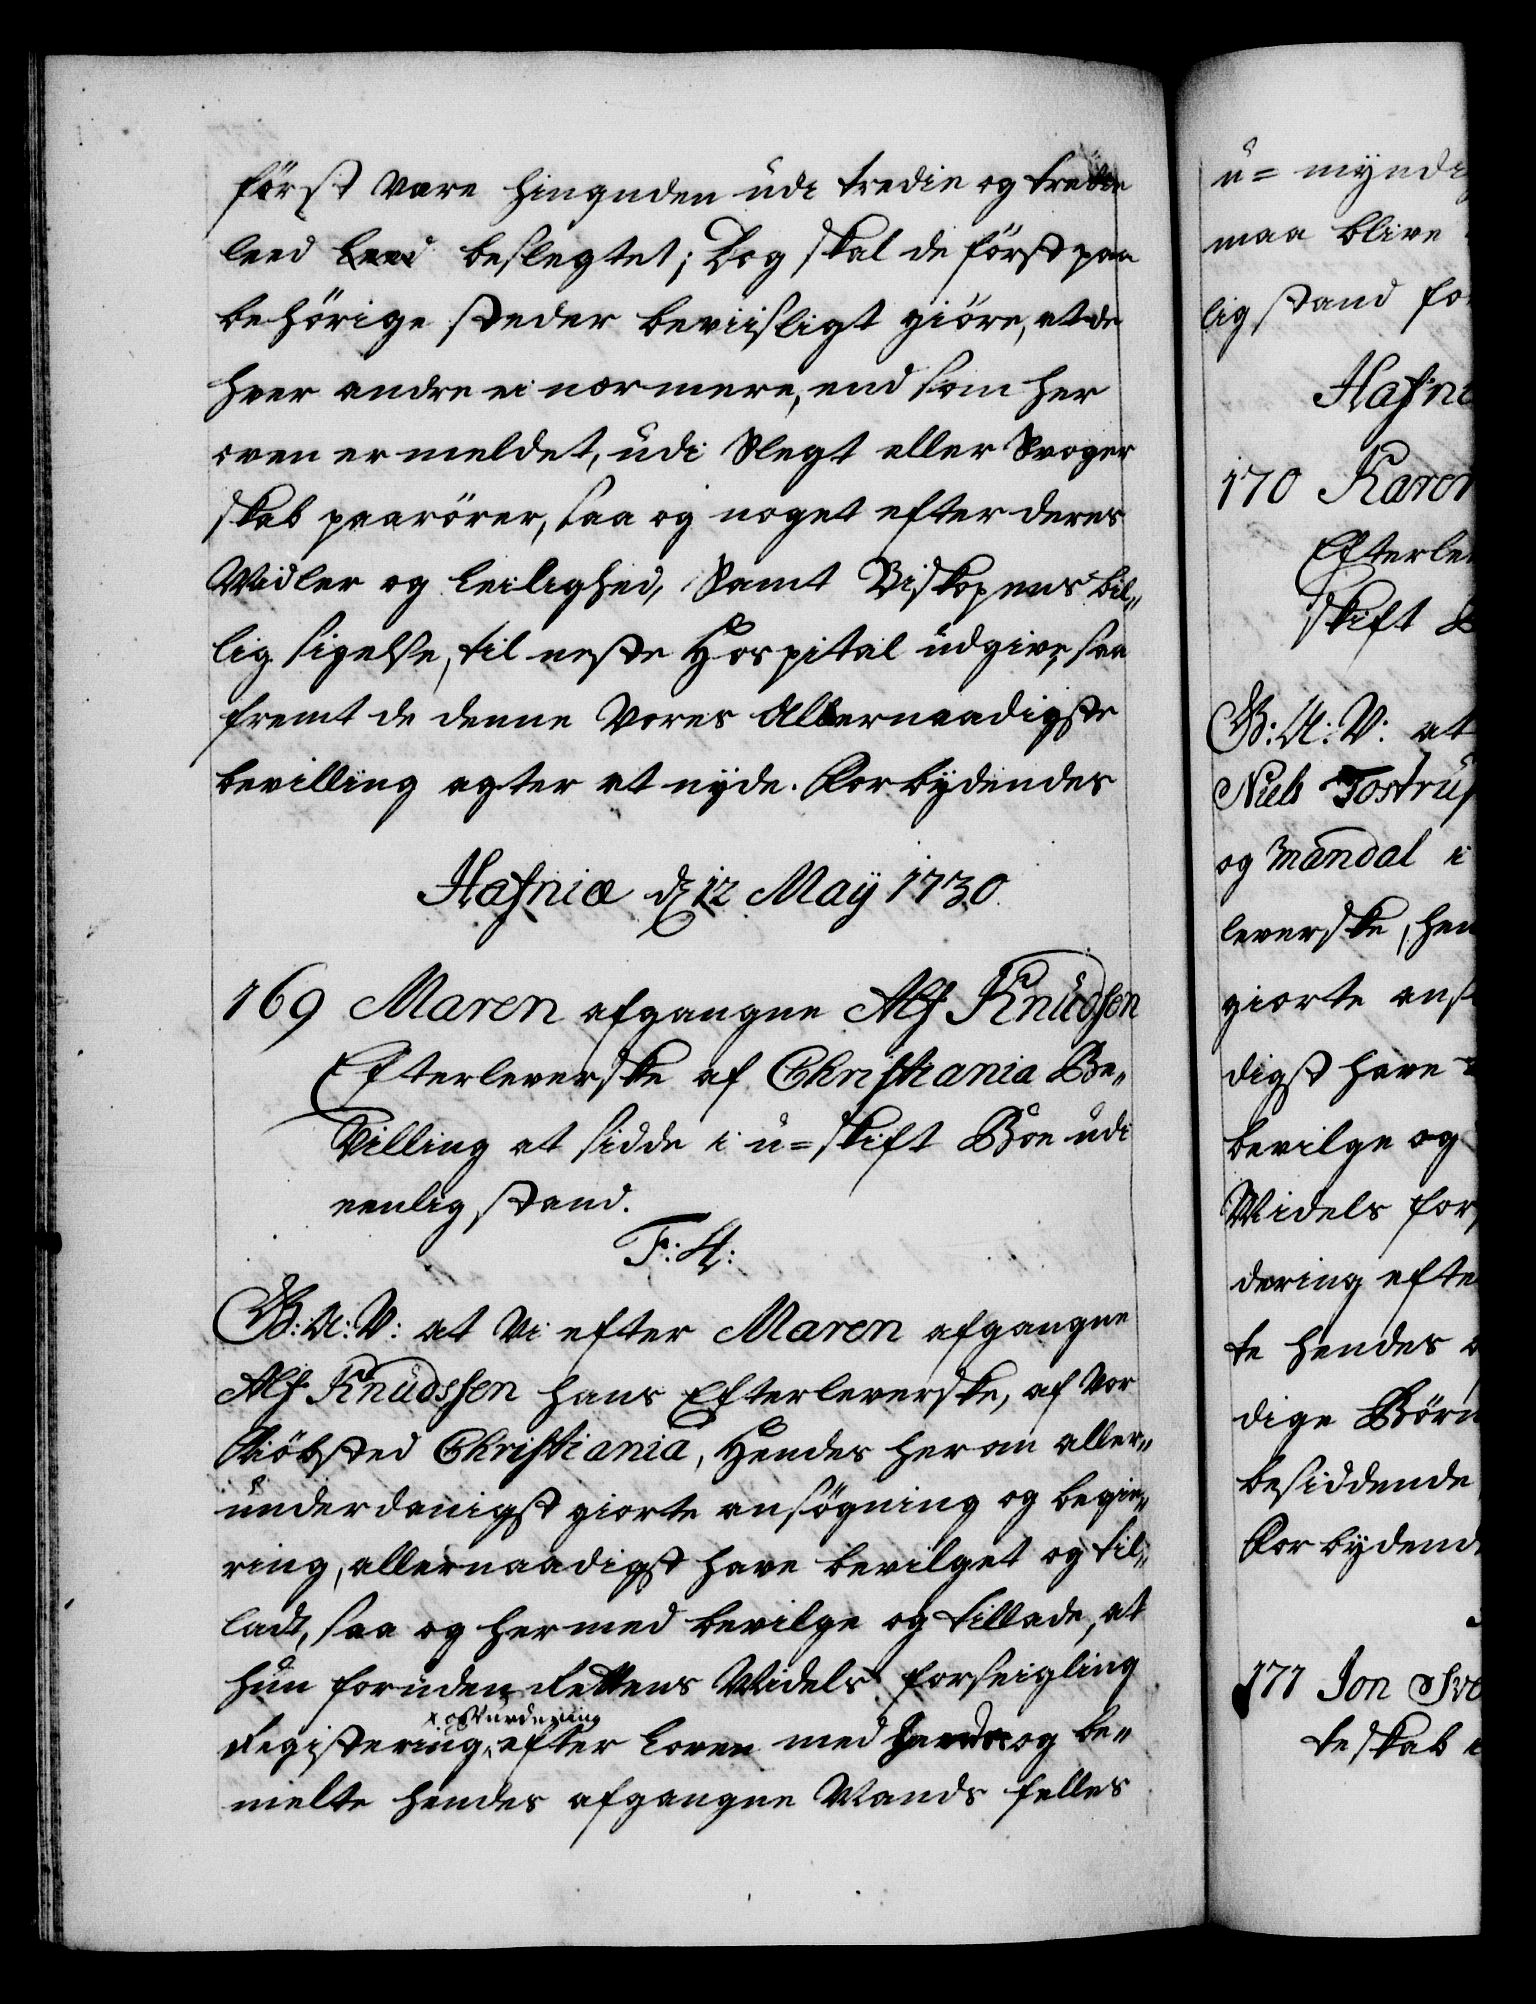 först vare hinanden udi tredie og tredie
leed beslegtet; Dog skal de först paa
behörige steder beviisligt giöre, at de
hver andre ei nærmere, end som her
oven er meldet, udi Slegt eller Svoger
skab paarörer, saa og noget efter deres
Midler og Leilighed, Samt Biskopens bil„
lig sigelse, til neste Hospital udgive, saa
fremt de denne Vores Allernaadigste
bevilling agter at nyde. Forbydendes
Hafniæ d 12 Maij 1730.
169 Maren afgangne Alf Knudsen
Efterleverske af Christiania Be„
villing at sidde i u=skift Boe udi
eenlig stand.
F: 4:
G: A: V: at Vi efter Maren afgangne
Alf Knudssen hans Efterleverske, af Vor
Kiöbsted Christiania, Hendes herom aller„
underdanigst giorte ansögning og begie„
ring, allernaadigst have bevilget og til„
ladt, saa og hermed bevilge og tillade, at
hun foruden Rettens Middels forseigling
x og Vurdering
Registering, efter Loven med og be„
melte hendes afgangne Mands felles
u= myndi
maa blive
lig stand for
Hafni
170 Karen
Efterle
skift B
G: A: V: at
Niels Tostrup
og Mandal i
leverske, hen
giorte ans
digst have
bevilge og
Midels fors
dering efte
te hendes
dige Börn
besiddende
Forbydend
171 Jon Sve
teskab i